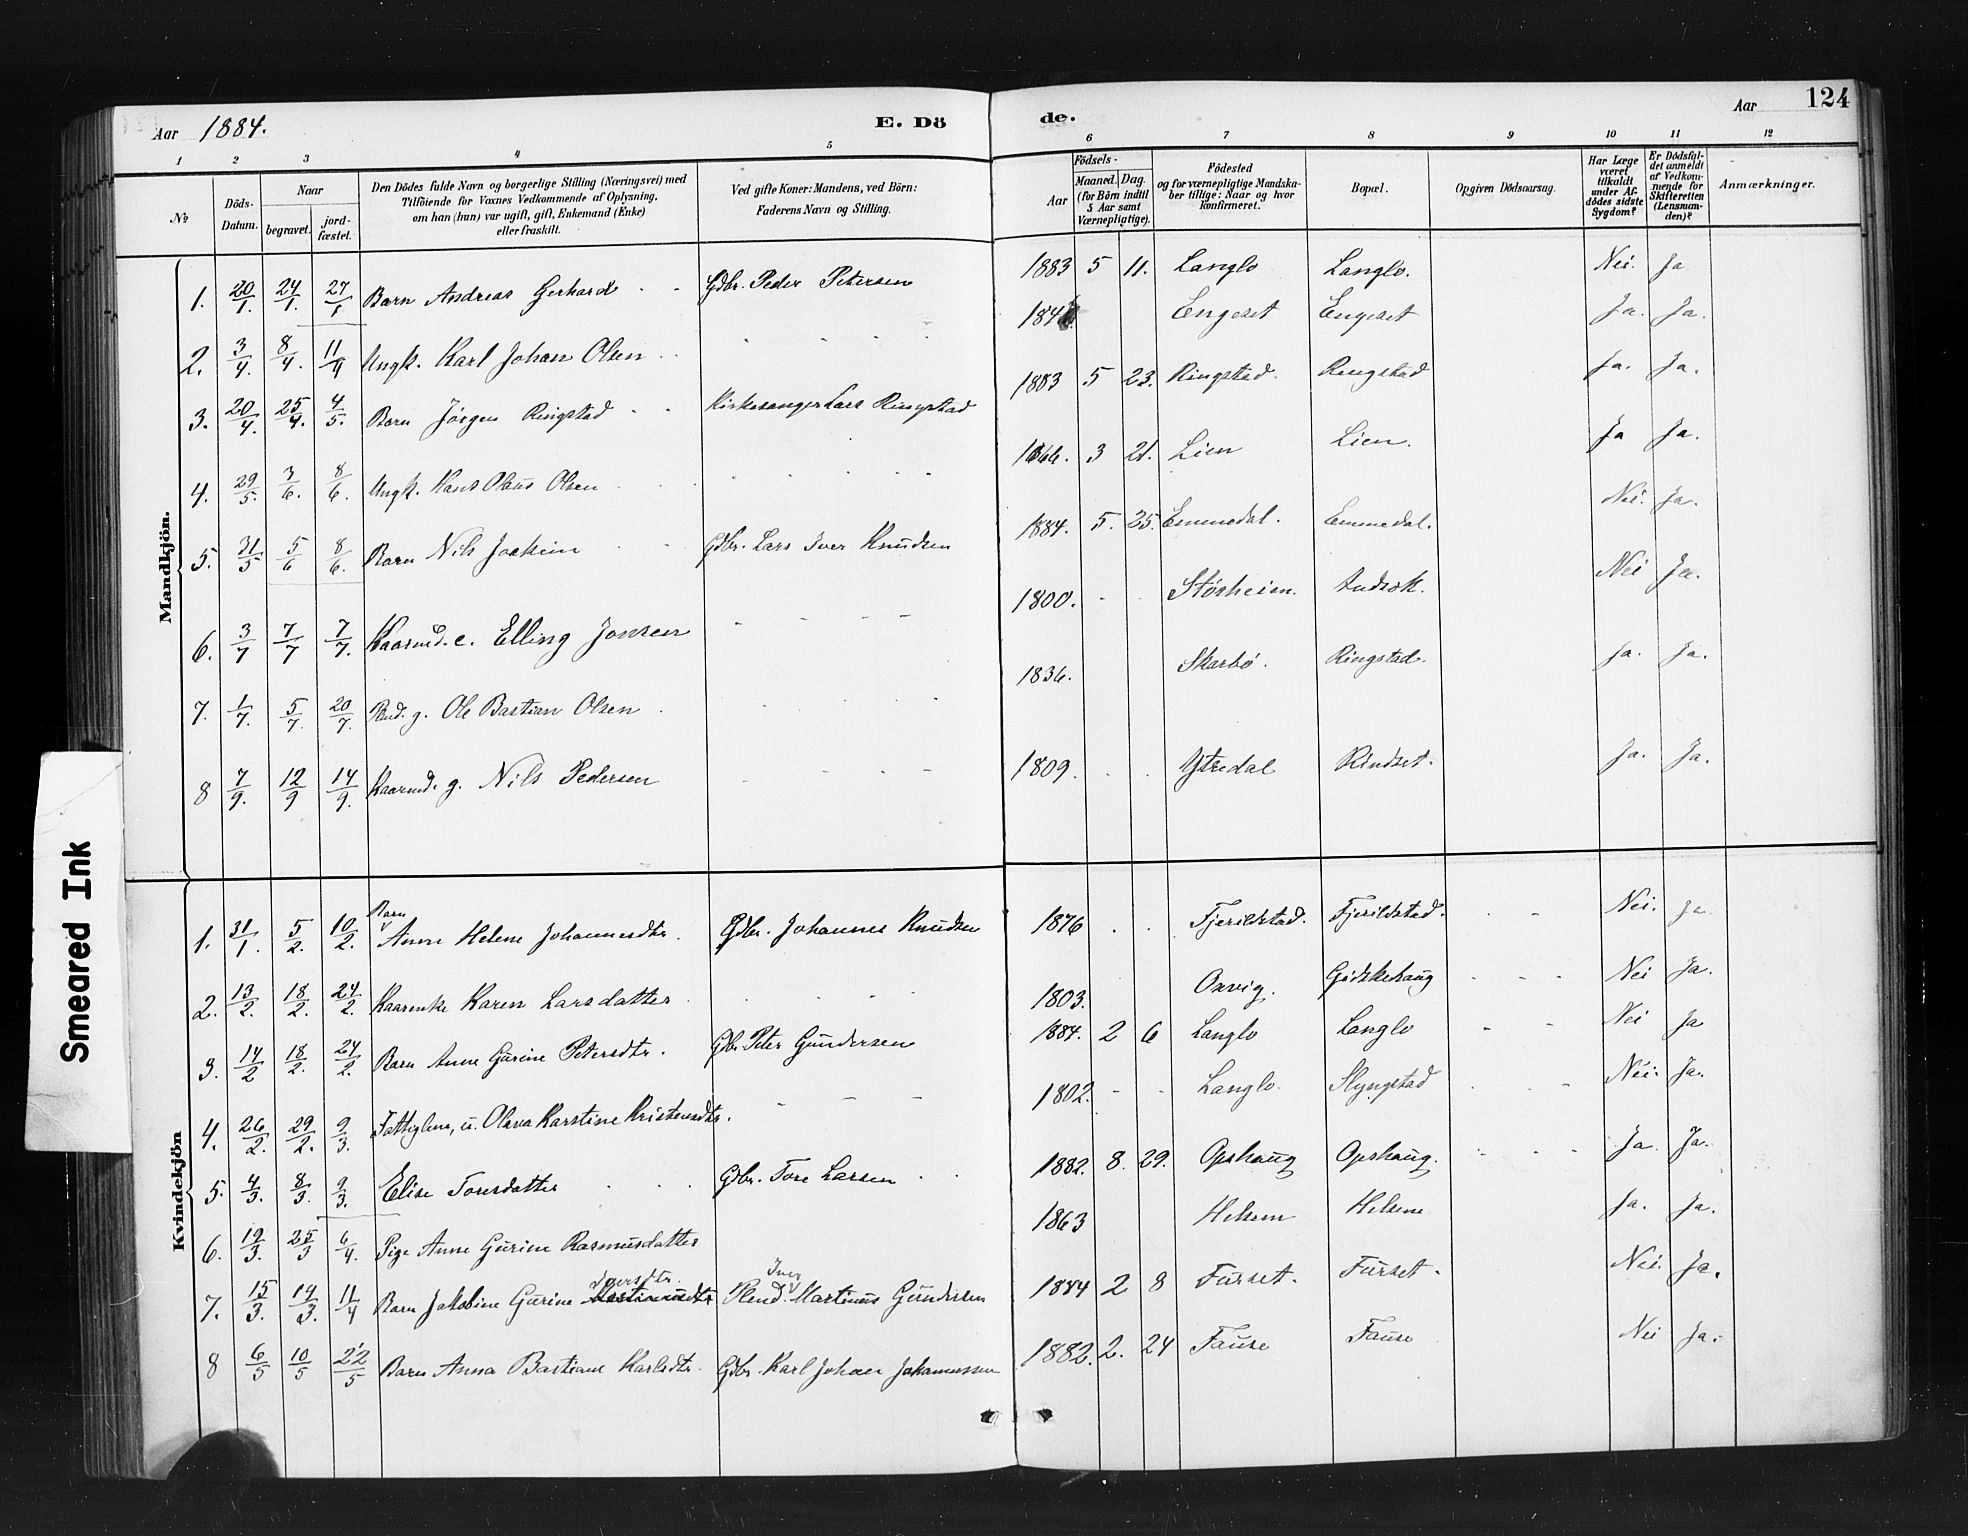 Aar 1884. E. Dö de. Aar 124
1 2 3 4 5 6 7 8 9 10 11 12
No
Döds-Datum.
Naar
begravet.
jord-fæstet.
Den Dödes fulde Navn og borgerlige Stilling (Næringsvei) med
Tilföiende for Voxnes Vedkommende af Oplysning,
om han (hun) var ugift, gift, Enkemand (Enke)
eller fraskilt.
Ved gifte Koner: Mandens, ved Börn:
Faderens Navn og Stilling.
Födsels-
Aar
Maaned. Dag.
(for Börn indtil
5 Aar samt
Værnepligtige).
Födested
og for værnepligtige Mandska-
ber tillige: Naar og hvor
konfirmeret.
Bopæl.
Opgiven Dödsaarsag.
Har Læge
været
tilkaldt
under Af-
dödes sidste
Sygdom?
Er Dödsfal-
det anmeldt
af Vedkom-
mende for
Skifteretten
(Lensman-
den)?
Anmærkninger.
Mandkjön.
1. 20/1. 24/1. 27/1 Barn Andreas Gerhard Gdbr. Peder Petersen 1883 5 11. Langlo Langlo. Nei. Ja
2. 3/4. 8/4. 11/4 Ungk. Karl Johan Olsen 184 Engeset Engeset Ja. Ja.
3. 20/4. 25/4. 4/5. Barn Jörgen Ringstad Kirkesanger Lars Ringstad 1883 5 23. Ringstad. Ringstad Ja. Ja.
4. 29/5. 3/6. 8/6. Ungk. Hans Olaus Olsen 1866. 3 21. Lien Lien. Ja Ja.
5. 31/5 5/6 8/6. Barn Nils Joakim Gdbr. Lars Iver Knudsen 1884. 5. 25. Emmedal. Emmedal. Nei. Ja.
6. 3/7 7/7 7/7. Kaarmd. e. Elling Jonsen 1800. Störheim. Andsok. Nei Ja.
7. 1/7. 5/7. 20/7. g. Ole Bastian Olsen 1836. Skarbö. Ringstad. Ja. Ja.
8 7/9. 12/9 14/9. Kaarmd. g. Nils Pedersen 1809. Ytredal Rindset. Ja. Ja.
Smeared Ink
Kvindekjön
1. 31/1. 5/2. 10/2. Barn Anne Helene Johannesdtr. Gdbr. Johannes Knudsen 1876 Fjerildstad. Fjerildstad. Nei. Ja.
2. 13/2. 18/2. 24/2. Kaarenke Karen Larsdatter 1803. Oxvig. Gidskehaug Nei Ja.
3. 14/2 18/2. 24/2. Barn Anne Gurine Petersdtr. Gdbr. Peter Gundersen 1884. 2 6 Langlo Langlo Nei Ja
4. 26/2. 29/2. 9/3. Fattiglem, u. Olava Karstine Kristensdtr. 1802. Langlo. Slyngstad Nei. Ja.
5. 4/3. 8/3. 9/3. Elise Toresdatter Gdbr. Tore Larsen 1882. 8. 29. Opshaug Opshaug. Ja Ja.
6. 19/3. 25/3 6/4. Pige Anne Gurine Rasmusdatter 1863 Helsem Helsem Ja. Ja.
Iversdtr. Iver
7. 15/3. 19/3. 11/4 Barn Jakobine Gurine Martinusdtr Martinus Gundersen 1884 2 8 Furset. Furset. Nei. Ja.
8 6/5 10/5 22/5 Barn Anna Bastiane Karlsdtr. Gdbr. Karl Johan Johannessen 1882. 2. 24 Fause Fause Nei Ja.